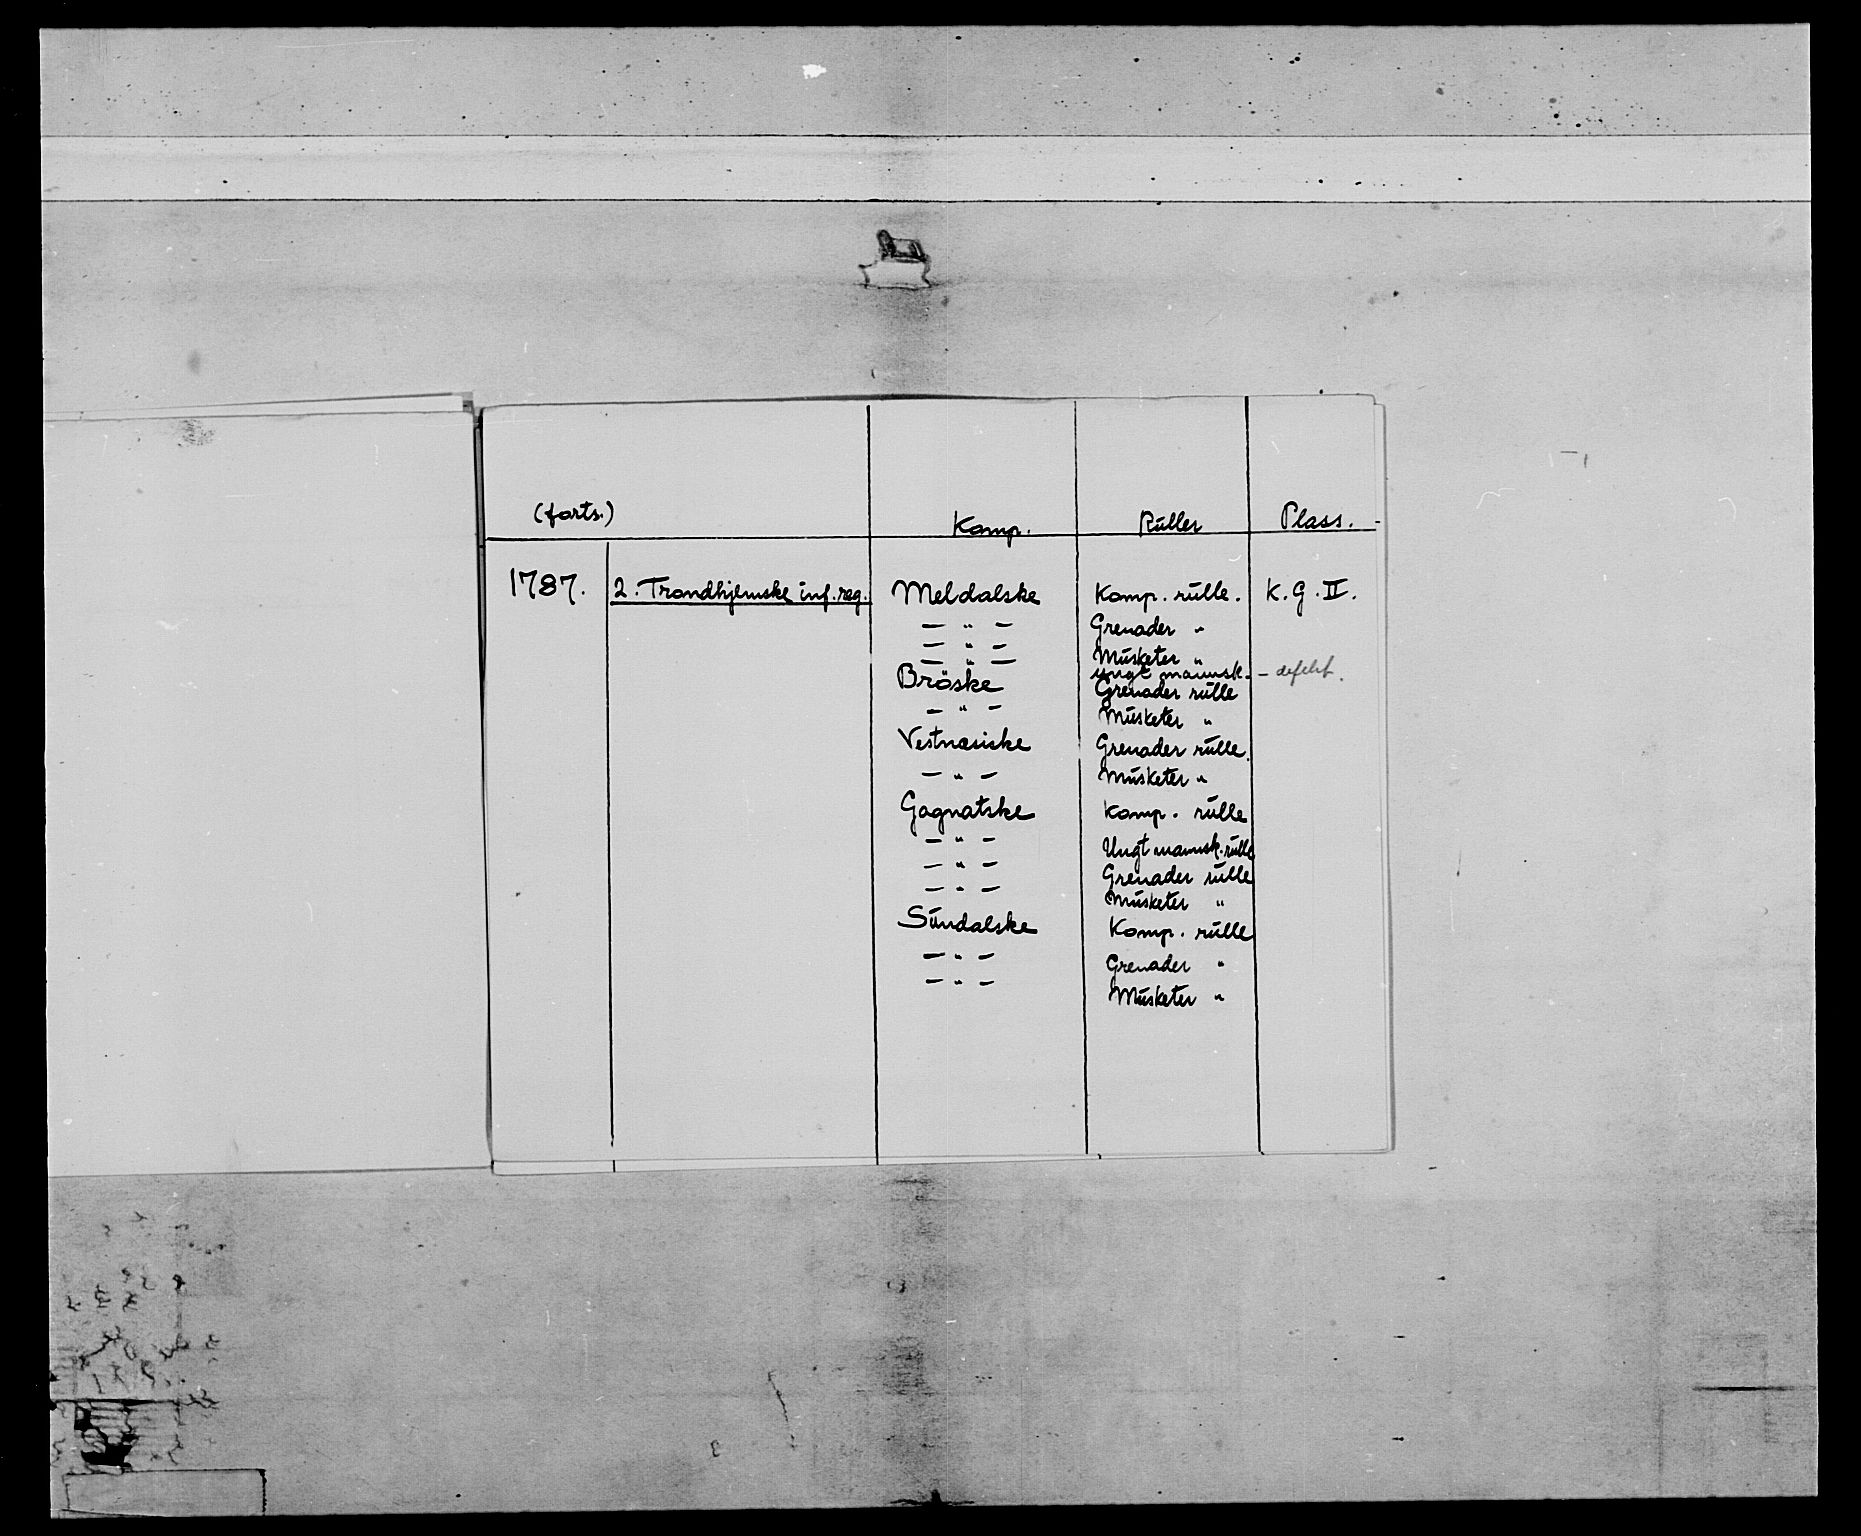 (forts.) Komp. Rŭller Plass.
1787. 2. Trondhjemske inf. reg. Meldalske Komp. rŭlle. K. G. II.
— " — Grenader "
— " — Mŭsketer "
— " — Ungt mannsk. — defekt.
Bröske Grenader rŭlle
— " — Mŭsketer "
Vestnæsiske Grenader rŭlle.
— " — Mŭsketer "
Gagnatske Komp. rŭlle
— " — Ungt mannsk. rŭlle
— " — Grenader rŭlle
— " — Mŭsketer "
Sŭndalske Komp. rŭlle
— " — Grenader "
— " — Mŭsketer "